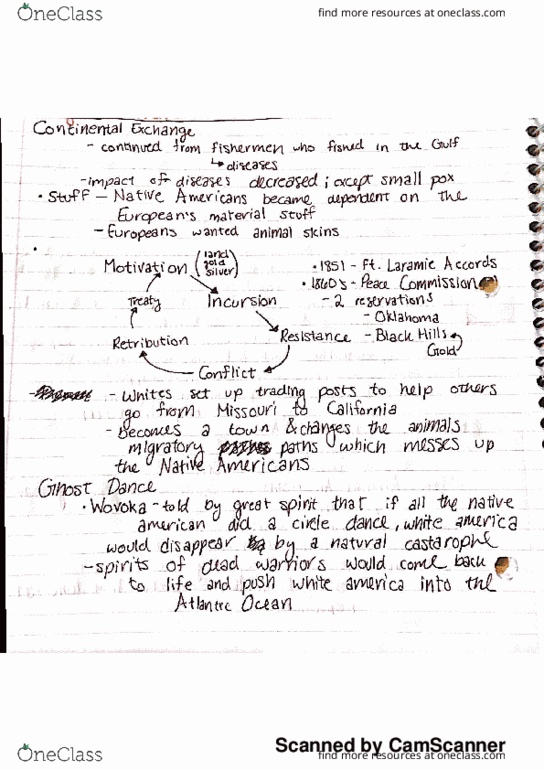 OneClass
find more resources at oneclass.com
Continental Exchange
- continued from fishermen who fished in the Gulf
↳ diseases
- impact of diseases decreased; except small pox
• Stuff - Native Americans became dependent on the
European's material stuff
- Europeans wanted animal skins
•
Motivation (land gold silver)
• 1851 - Ft. Laramie Accords
• 1860's - Peace Commission
Treaty
Incursion
- 2 reservations
- Oklahoma
Retribution
Resistance
- Black Hills
Gold
Conflict
- Whites set up trading posts to help others
go from Missouri to California
- Becomes a town & changes the animals
migratory paths which messes up
the Native Americans
Ghost Dance
• Wovoka - told by great spirit that if all the native
american did a circle dance, white america
would disappear by a natural castarophe
- spirits of dead warriors would come back
to life and push white america into the
Atlantic Ocean
Scanned by CamScanner
OneClass
find more resources at oneclass.com